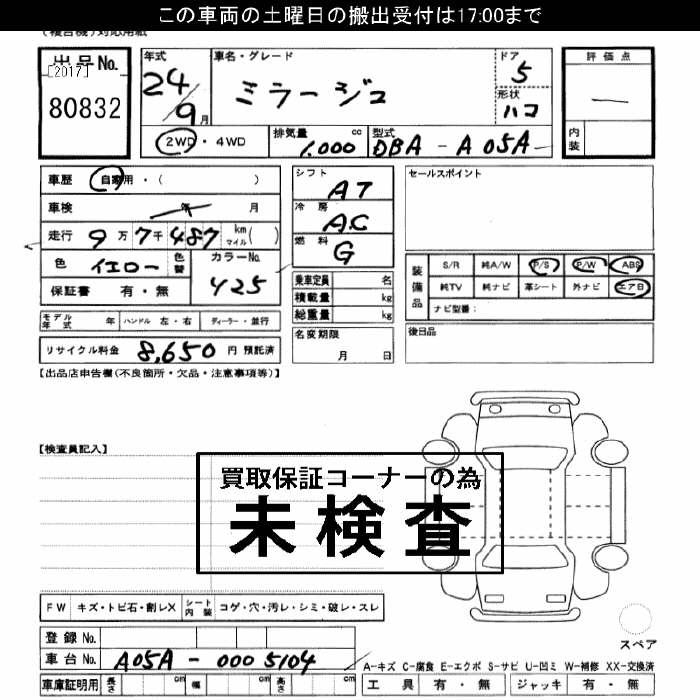 この車両の土曜日の搬出受付は17:00まで
(複合機)対応用紙
出品No.
[2017]
80832
年式
24/9月
車名・グレード
ミラージュ
ドア
5
形状
ハコ
評価点
内装
2WD・4WD
排気量 1,000 cc
型式 DBA - A05A
車歴 自家用・( )
車検 年 月
走行 9万7千487 km マイル( )
色 イエロー 色替
カラーNo. 425
保証書 有・無
シフト AT
冷房 AC
燃料 G
乗車定員 名
積載量 kg
総重量 kg
セールスポイント
装備品
S/R 純A/W P/S P/W ABS
純TV 純ナビ 革シート 外ナビ エアB
ナビ型番:
モデル年式 年 ハンドル 左・右 ディーラー・並行
名変期限 月 日
後日品
リサイクル料金 8,650 円 預託済
【出品店申告欄(不良個所・欠品・注意事項等)】
【検査員記入】
買取保証コーナーの為
未検査
FW キズ・トビ石・割レX シート内装 コゲ・穴・汚レ・シミ・破レ・スレ
スペア
登録No.
車台No. A05A - 0005104
A-キズ C-腐食 E-エクボ S-サビ U-凹ミ W-補修 XX-交換済
車庫証明用 長さ cm 幅 cm 高さ cm
工具 有・無 ジャッキ 有・無